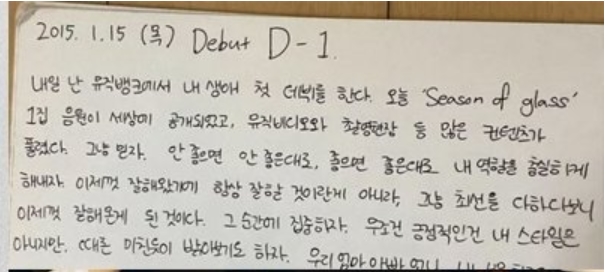 2015. 1.15 (목) Debut D-1.
내일 난 뮤직뱅크에서 내 생애 첫 데뷔를 한다. 오늘 'Season of glass'
1집 음원이 세상에 공개되었고, 뮤직비디오와 촬영현장 등 많은 컨텐츠가
풀렸다. 그냥 믿자. 안 좋으면 안 좋은대로, 좋으면 좋은대로 내 역할을 충실하게
해내자. 이제껏 잘해왔기에 항상 잘할 것이란게 아니라, 그냥 최선을 다하다보니
이제껏 잘해온게 된 것이다. 그 순간에 집중하자. 무조건 긍정적인건 내 스타일은
아니지만, 때론 미친듯이 받아보기도 하자. 우리 엄마 아빠 언니